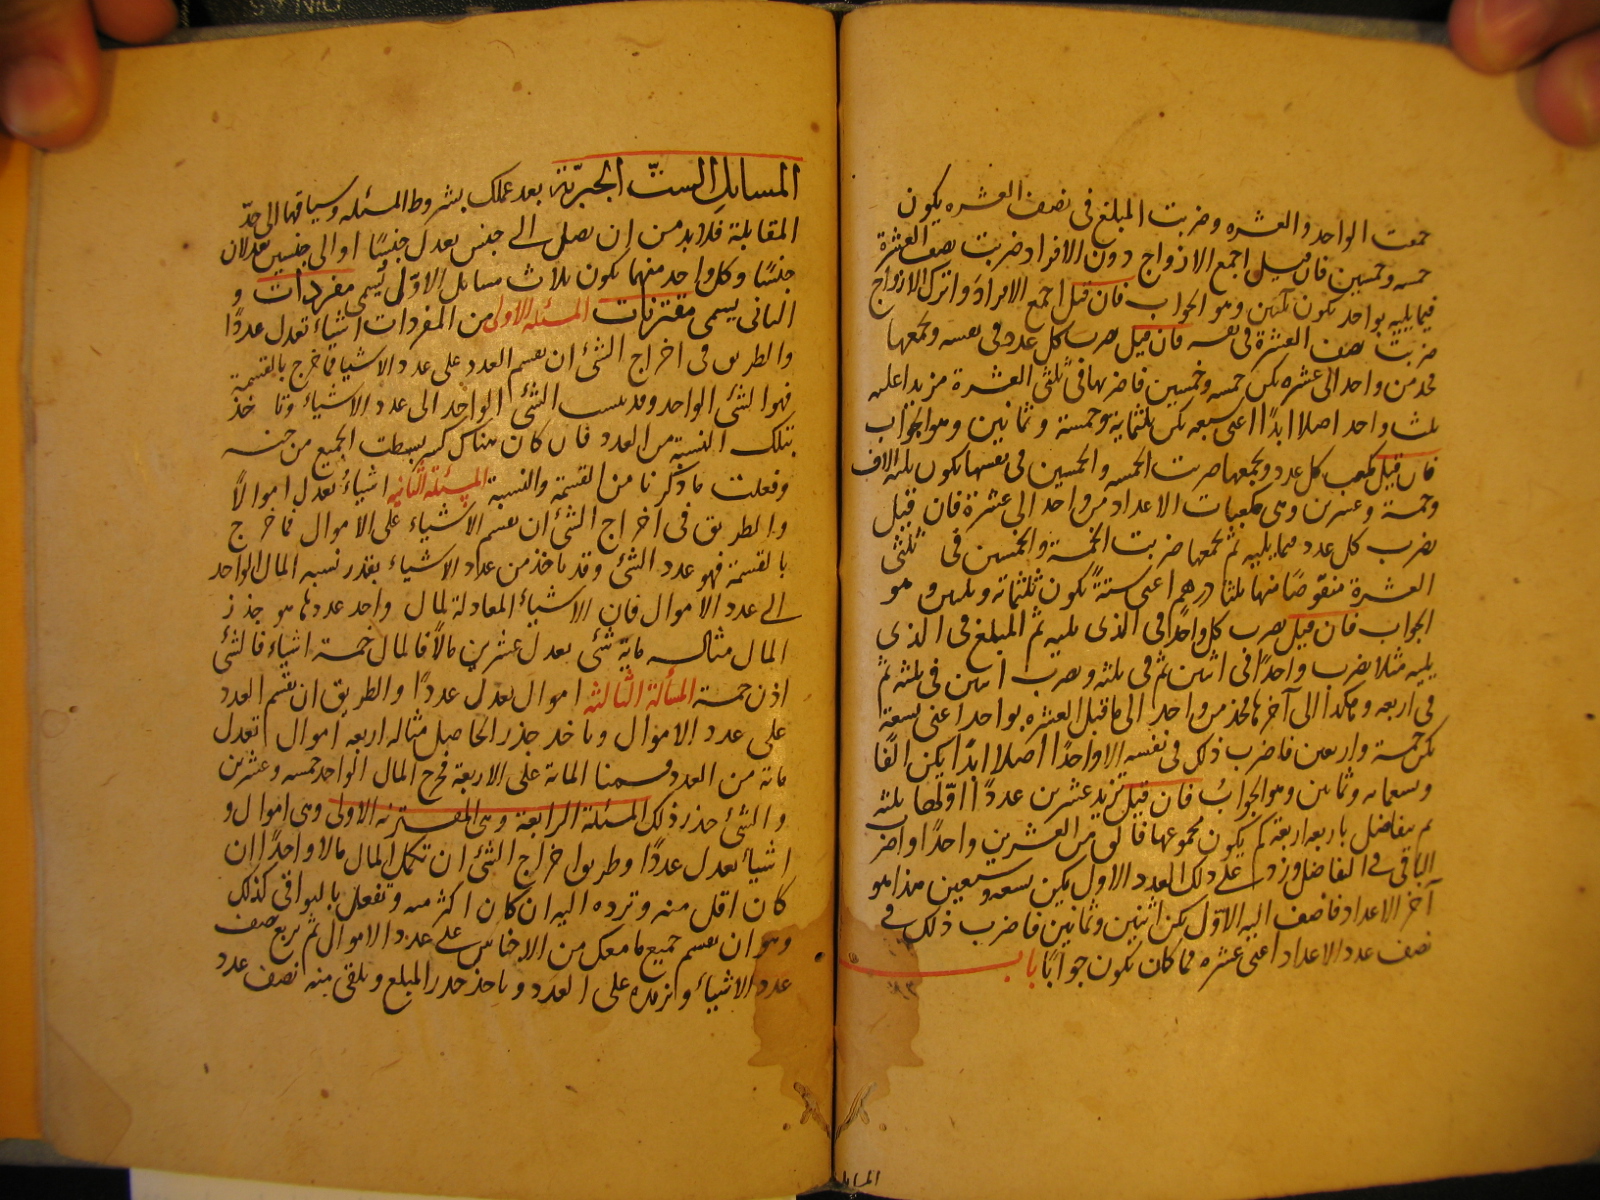 جمعت الواحد والعشره وضربت المبلغ فى نصف العشره يكون
خمسه وخمسين فان قيل اجمع الازواج دون الافراد ضربت نصف العشرة
فيما يليه بواحد يكون ثلثين وهو الجواب فان قيل اجمع الافراد واترك الازواج
ضربت نصف العشرة فى نفسه فان قيل ضرب كل عدد فى نفسه وتجمعها
فخذ من واحد الى عشره يكن خمسه وخمسين فاضربها فى ثلثى العشرة مزيدا عليه
ثلث واحد اصلا ابدًا اعنى سبعه يكن ثلثمايه وخمسة وثمانين وهو الجواب
فان قيل كعب كل عدد وتجمعها ضربت الخمسه والخمسين فى نفسها يكون ثلثه الاف
وخمسة وعشرين وهى مكعبات الاعداد من واحد الى عشرة فان قيل
يضرب كل عدد فيما يليه ثم تجمعها ضربت الخمسة والخمسين فى ثلثى
العشرة منقوصًا منها ثلثا درهم اعنى ستةً يكون ثلثمائة وثلثين وهو
الجواب فان قيل يضرب كل واحدٍ فى الذى يليه ثم المبلغ فى الذى
يليه مثلا يضرب واحدًا فى اثنين ثم فى ثلثه ويضرب اثنين فى ثلثه ثم
فى اربعه وهكذا الى آخرها فخذ من واحد الى ما قبل العشره بواحد اعنى تسعة
يكن خمسة واربعين فاضرب ذلك فى نفسه الا واحدًا اصلا ابدًا يكن الفًا
وتسعمايه وثمانين وهو الجوابُ فان قيل تزيد عشرين عددًا اولها ثلثه
ثم يتفاضل باربعه اربعة كم يكون مجموعها فالق من العشرين واحدًا واضرب
الباقى فى التفاضل وزد على ذلك العدد الاول يكن تسعه وسبعين هذا هو
آخر الاعداد فاضف اليه الاول يكن اثنين وثمانين فاضرب ذلك فى
نصف عدد الاعداد اعنى عشره فما كان يكون جوابًا باب
المسايل
المسايل الستّ الجبريّة بعد عملك بشروط المسئله وسياقها الى حدّ
المقابلة فلا بد من ان يصل الى جنس يعدل جنسًا او الى جنسين يعدلان
جنسًا وكل واحد منهما يكون ثلاث مسايل الاوّلى يُسمى مفردات و
الثانى يسمى مقترنات المسئله الاولى من المفردات اشياء تعدل عددًا
والطريق فى اخراج الشئ ان يقسم العدد على عدد الاشيا فما خرج بالقسمة
فهو الشئ الواحد وقد ينسب الشئ الواحد الى عدد الاشياء وتاخذ
بتلك النسبة من العدد فان كان هناك كسر بسطت الجميع من جنسه
وفعلت ما ذكرنا من القسمة والنسبة المسئلة الثانيه اشياءُ تعدل اموالًا
والطريق فى اخراج الشئ ان يقسم الاشياء على الاموال فما خرج
بالقسمة فهو عدد الشئ وقد تاخذ من عداد الاشياء بقدر نسبه المال الواحد
الى عدد الاموال فان الاشياء المعادلة لمال واحد عددها هو جذر
المال مثاله مايه شئ يعدل عشرين مالًا فالمال خمسة اشياء فالشئ
اذن خمسة المسألة الثالثه اموال يعدل عددًا والطريق ان نقسم العدد
على عدد الاموال وتاخذ جذر الحاصل مثاله اربعه اموال تعدل
مائة من العدد قسمنا المائة على الاربعة فخرج المال الواحد خمسه وعشرين
والشئ جذر ذلك المسئلة الرابعة وهى المقترنه الاولى وهى اموال و
اشياء تعدل عددًا وطريق اخراج الشئ ان تكمل المال مالا واحدًا ان
كان اقل منه وترده اليه ان كان اكثر منه وتفعل بالبواقى كذلك
وهو ان يقسم جميع ما معك من الاجناس على عدد الاموال ثم تربع نصف
عدد الاشياء وتزيده على العدد وتاخذ جذر المبلغ وتلقى منه نصف عدد